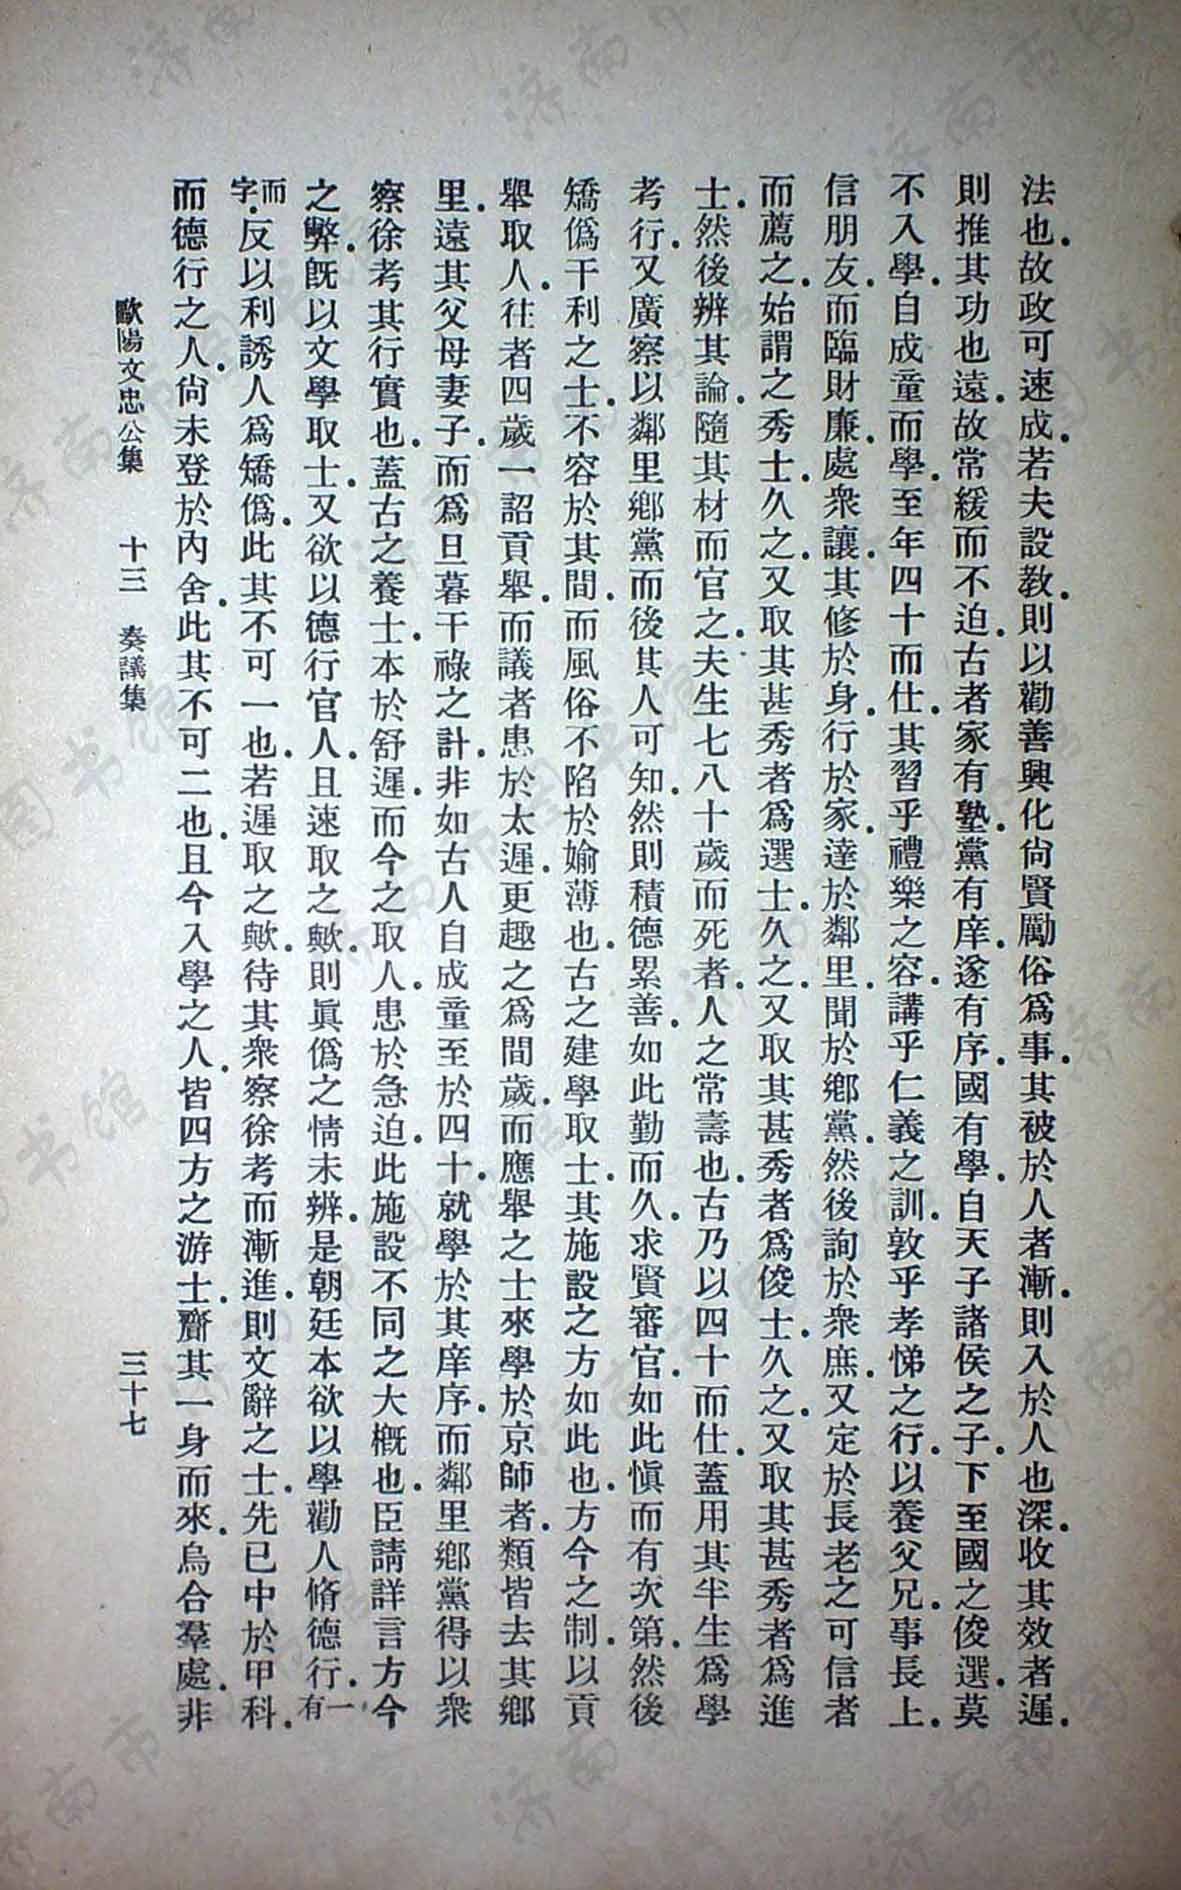 法也.故政可速成.若夫設教.則以勸善興化尙賢勵俗爲事.其被於人者漸.則入於人也深.收其效者遲.
則推其功也遠.故常緩而不迫.古者家有塾.黨有庠.遂有序.國有學.自天子諸侯之子.下至國之俊選.莫
不入學.自成童而學.至年四十而仕.其習乎禮樂之容.講乎仁義之訓.敦乎孝悌之行.以養父兄.事長上.
信朋友.而臨財廉.處衆讓.其修於身.行於家.達於鄰里.聞於鄕黨.然後詢於衆庶.又定於長老之可信者
而薦之.始謂之秀士.久之.又取其甚秀者爲選士.久之.又取其甚秀者爲俊士.久之.又取其甚秀者爲進
士.然後辨其論.隨其材而官之.夫生七八十歲而死者.人之常壽也.古乃以四十而仕.蓋用其半生爲學
考行.又廣察以鄰里鄕黨.而後其人可知.然則積德累善.如此勤而久.求賢審官.如此愼而有次第.然後
矯僞干利之士.不容於其間.而風俗不陷於媮薄也.古之建學取士.其施設之方如此也.方今之制.以貢
舉取人.往者四歲一詔貢舉.而議者患於太遲.更趣之爲間歲.而應舉之士來學於京師者.類皆去其鄕
里.遠其父母妻子.而爲旦暮干祿之計.非如古人自成童至於四十.就學於其庠序.而鄰里鄕黨得以衆
察徐考其行實也.蓋古之養士.本於舒遲.而今之取人.患於急迫.此施設不同之大槪也.臣請詳言方今
之弊.旣以文學取士.又欲以德行官人.且速取之歟.則眞僞之情未辨.是朝廷本欲以學勸人脩德行.一有
而字.反以利誘人爲矯僞.此其不可一也.若遲取之歟.待其衆察徐考而漸進.則文辭之士.先已中於甲科.
而德行之人.尙未登於內舍.此其不可二也.且今入學之人.皆四方之游士.齎其一身而來.烏合羣處.非
歐陽文忠公集 十三 奏議集 三十七